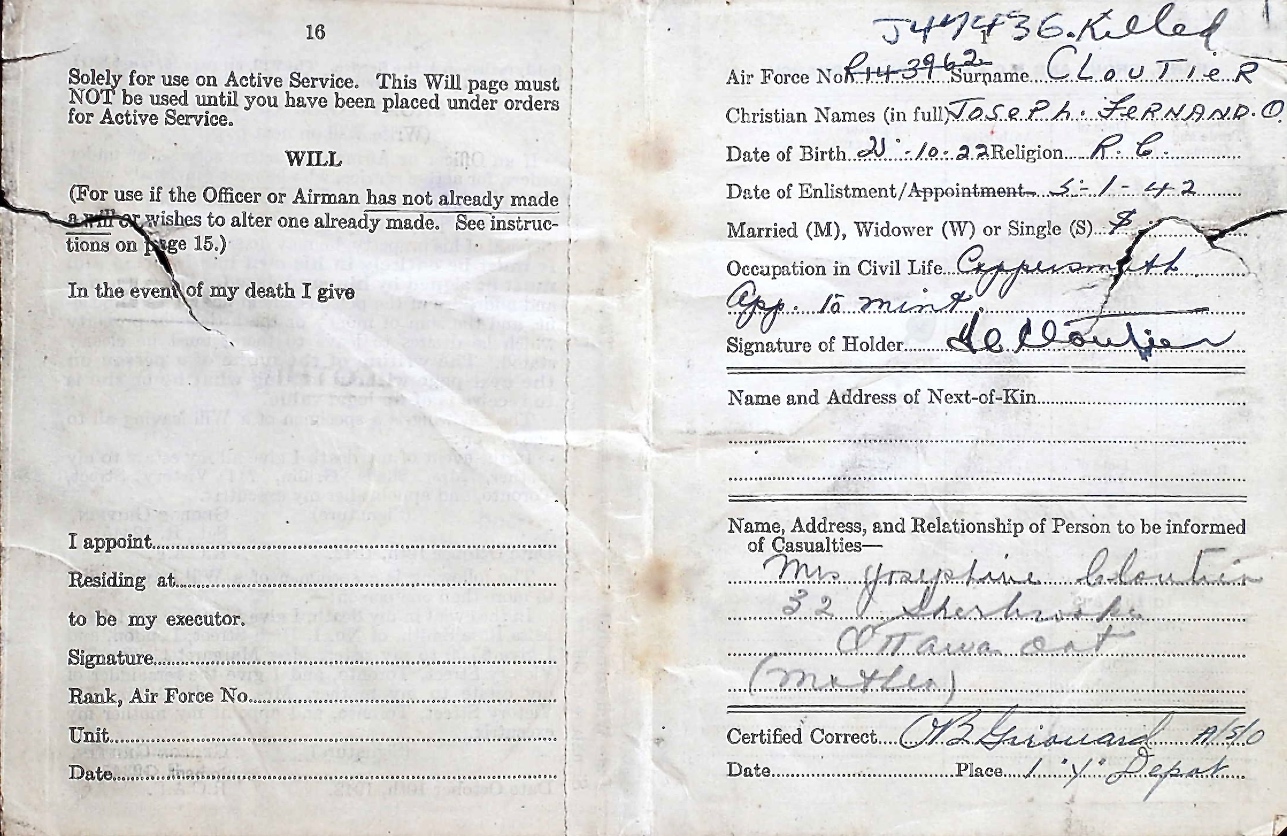 16
Solely for use on Active Service. This Will page must
NOT be used until you have been placed under orders
for Active Service.
WILL
(For use if the Officer or Airman has not already made
a will or wishes to alter one already made. See instruc-
tions on page 15.)
In the event of my death I give
I appoint
Residing at
to be my executor.
Signature
Rank, Air Force No.
Unit
Date
1
J47436. Killed
Air Force No. R143962 Surname CLOUTIER
Christian Names (in full) JOSEPH. FERNAND. O
Date of Birth 21-10-22 Religion R. C.
Date of Enlistment/Appointment 5-1-42
Married (M), Widower (W) or Single (S) S
Occupation in Civil Life Coppersmith
App. to mint
Signature of Holder Cloutier
Name and Address of Next-of-Kin
Name, Address, and Relationship of Person to be informed
of Casualties—
Mrs Josephine Cloutier
32 Sherbrooke
Ottawa Ont
(Mother)
Certified Correct Girouard A/S/O
Date Place 1 "Y" Depot